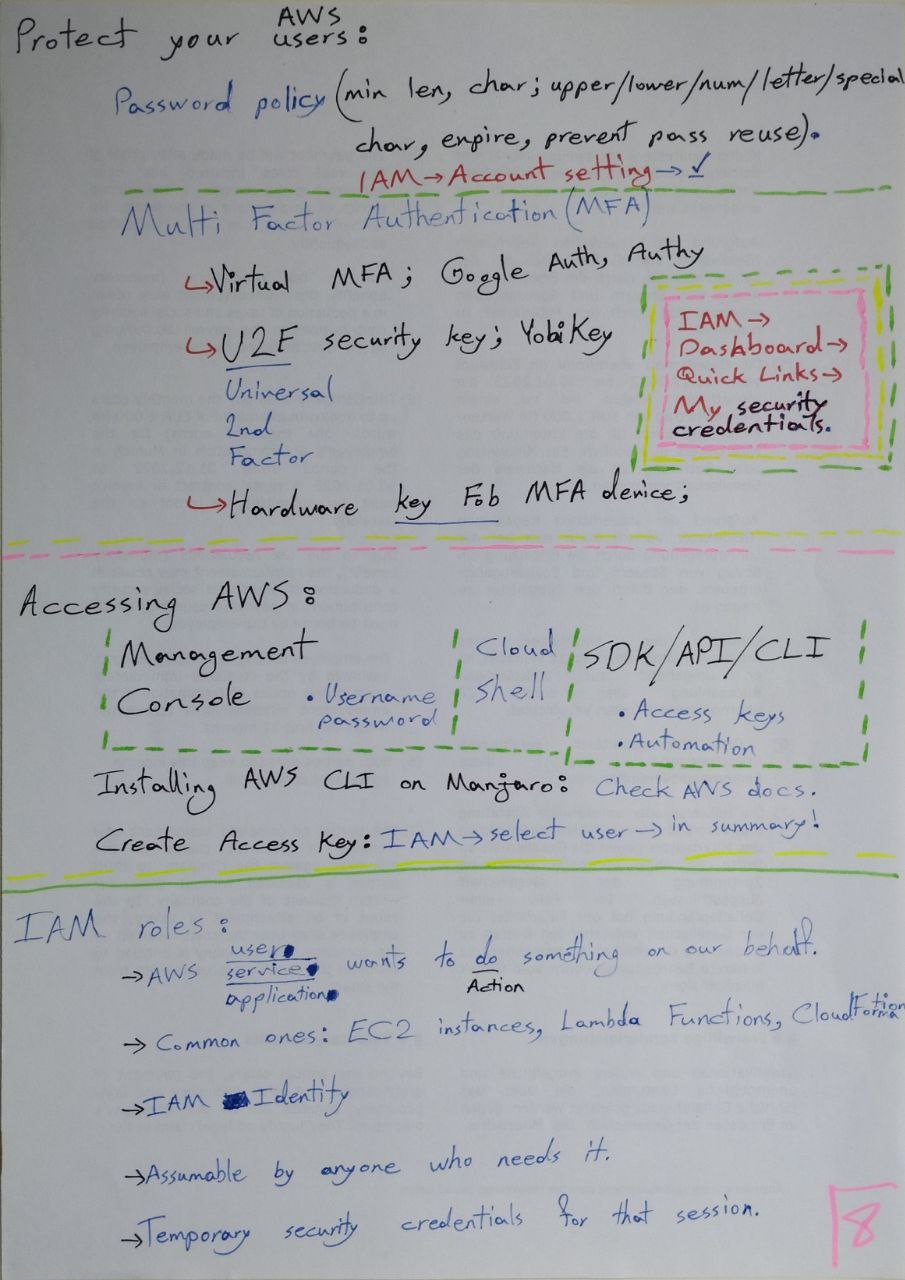 Protect your AWS users:
Password policy (min len, char; upper/lower/num/letter/special
char, enpire, prevent pass reuse).
IAM→Account setting→✓
Multi Factor Authentication (MFA)
↳Virtual MFA; Google Auth, Authy
↳U2F security key; YobiKey
Universal
2nd
Factor
↳Hardware key Fob MFA denice;
IAM→
Dashboard→
Quick Links→
My security
credentials.
Accessing AWS:
Management
Console • Username
password
Cloud
Shell
SDK/API/CLI
• Access keys
• Automation
Installing AWS CLI on Manjaro: Check AWS docs.
Create Access Key: IAM→select user→in summary!
IAM roles:
→AWS user wants to do something on our behalf.
service
application
Action
→Common ones: EC2 instances, Lambda Functions, CloudFormation
→IAM Identity
→Assumable by anyone who needs it.
→Temporary security credentials for that session.
8